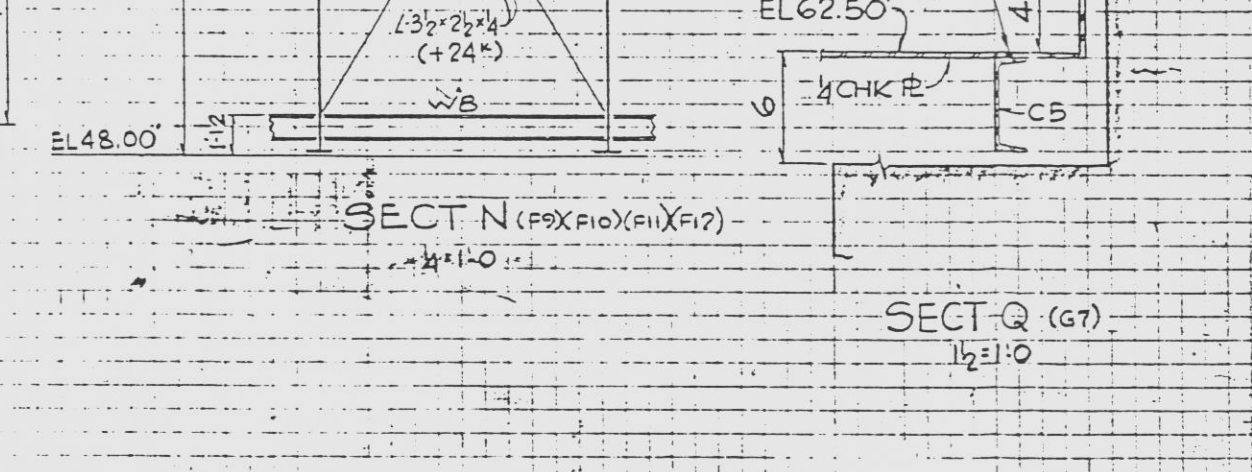 L-3½×2½×¼
(+24ᴷ)
W8
1'-1½
EL48.00'
SECT N (F9)(F10)(F11)(F12)
¼"=1'-0
EL62.50'
4
¼ CHK PL
6
C5
SECT Q (G7)
1½=1'-0